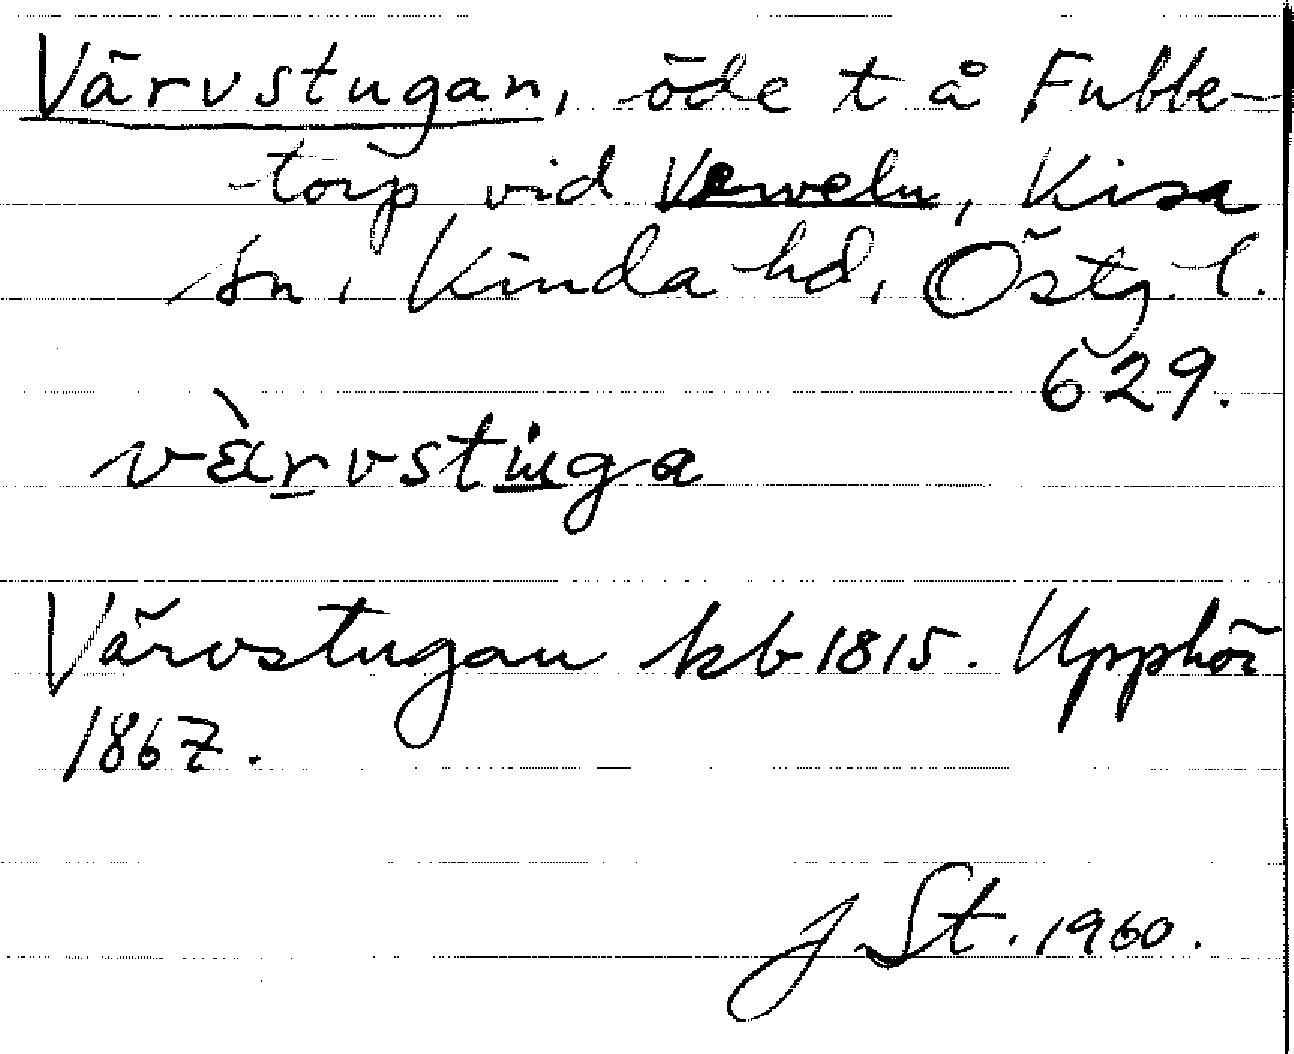 Värvstugan, öde t å Fubbe-
torp vid Verveln, Kisa
sn, Kinda hd, Östg. l.
629.
vàrvstuga
Värvstugan kb 1815. Upphör
1867.
J St. 1960.